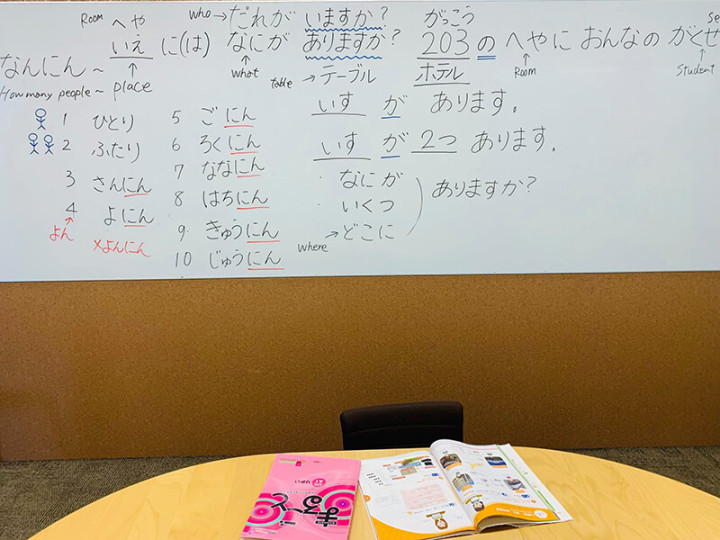 Room へや
Who→だれが いますか?
がっこう
いえ に(は) なにが ありますか?
203の へやに おんなの がくせ
なんにん~
How many people~
place
what
table →テーブル
ホテル
Room
Student
いす が あります。
いす が 2つ あります.
なにが
いくつ
where →どこに
ありますか?
1 ひとり
2 ふたり
3 さんにん
4 よにん
よん ×よんにん
5 ごにん
6 ろくにん
7 ななにん
8 はちにん
9 きゅうにん
10 じゅうにん
まるごと